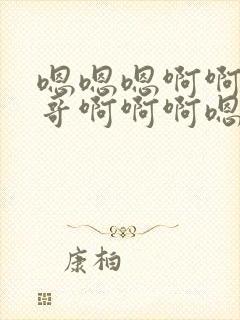 嗯嗯嗯啊啊
哥啊啊啊嗯
康柏